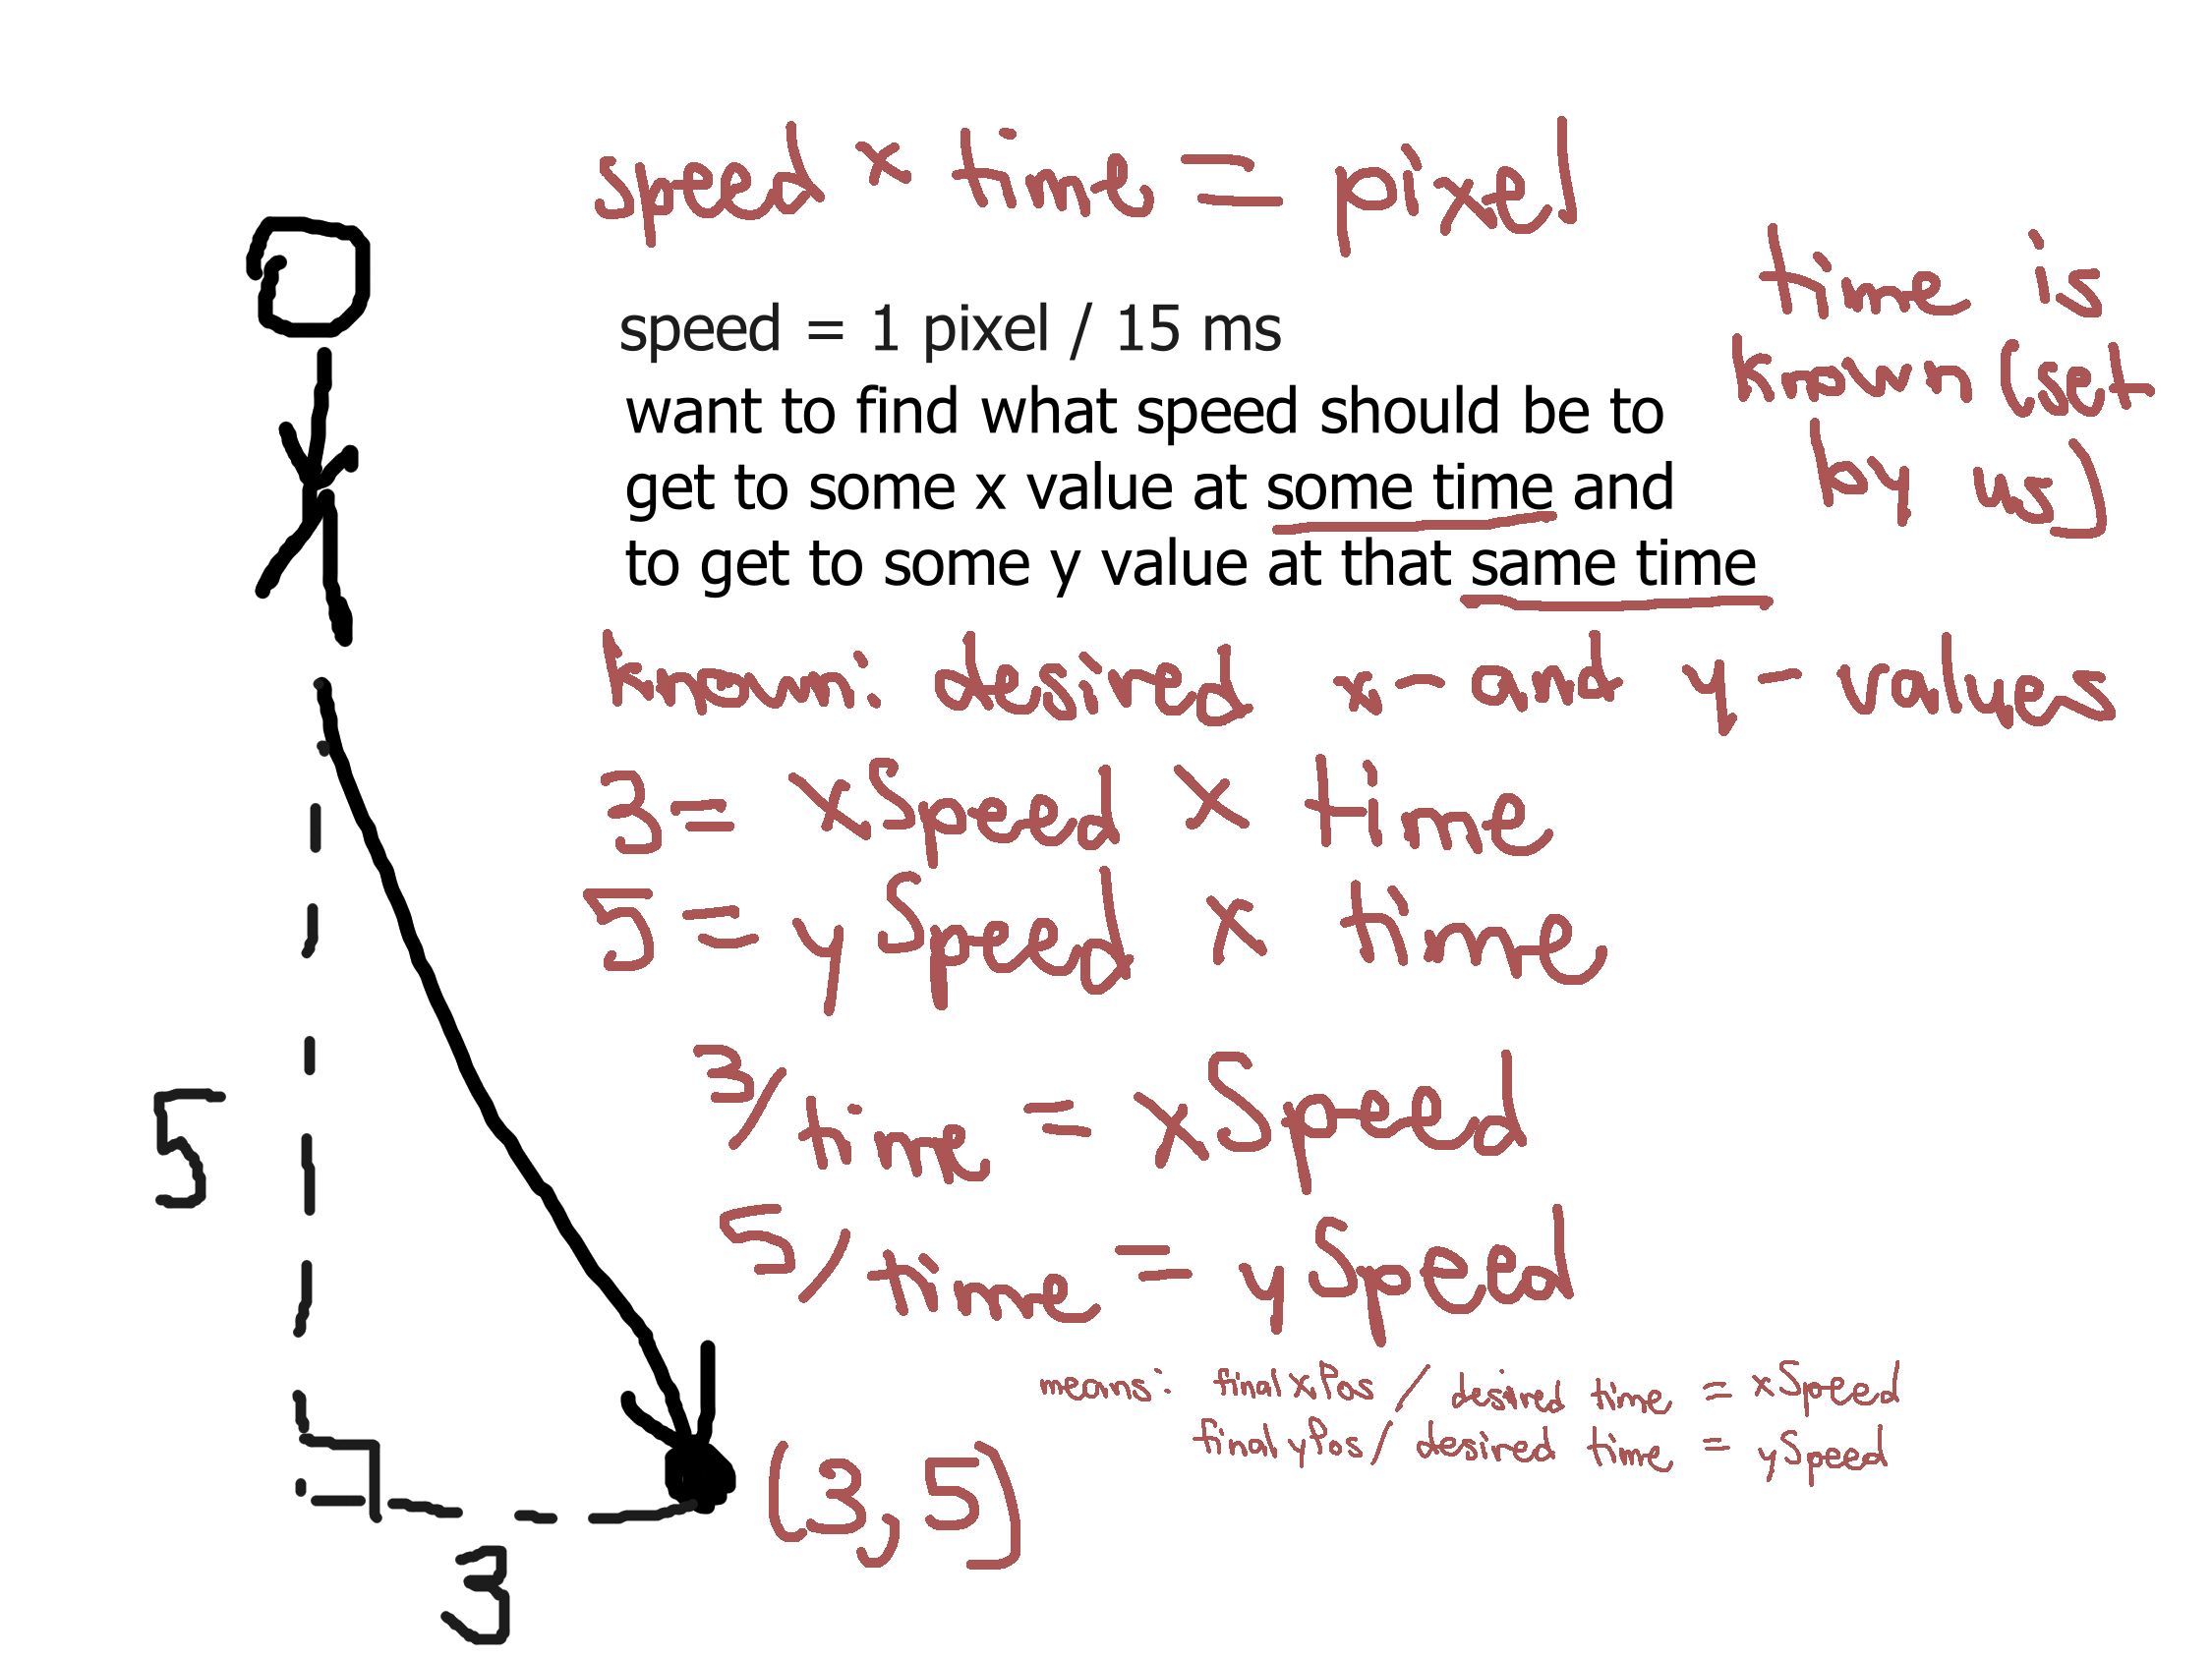 speed x time = pixel
time is
known (set
by us)
speed = 1 pixel / 15 ms
want to find what speed should be to
get to some x value at some time and
to get to some y value at that same time
known: desired x- and y- values
3 = xSpeed x time
5 = ySpeed x time
3/time = xSpeed
5/time = ySpeed
means: finalxPos / desired time = xSpeed
finalyPos / desired time = ySpeed
5
(3,5)
3